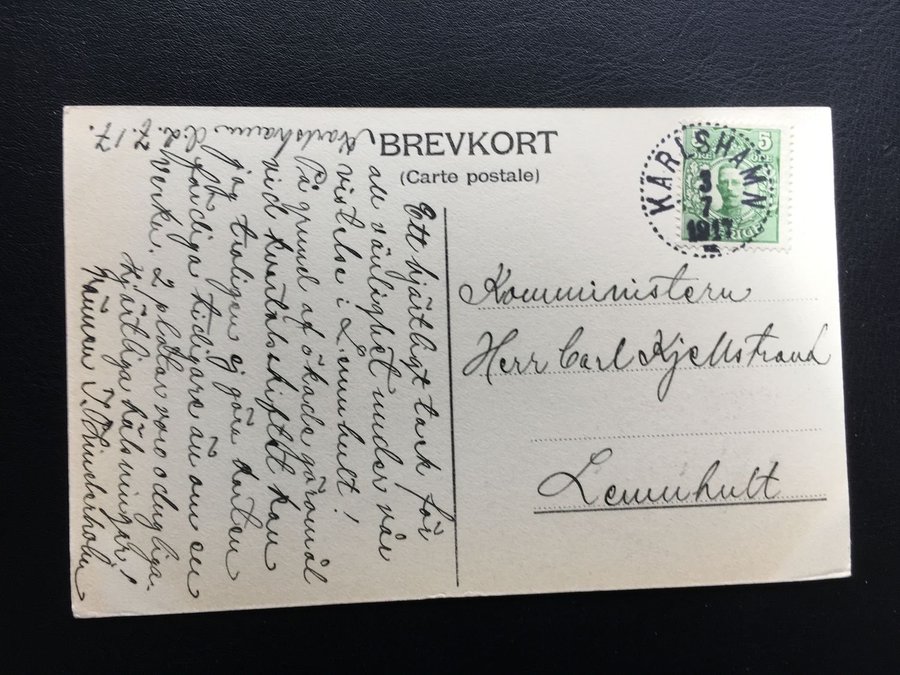 BREVKORT
(Carte postale)
KARLSHAMN
3
7
1917
5 5
ÖRE
Karlshamn 7. 17.
Ett hjärtligt tack för
all vänlighet under vår
vistelse i Lemnhult!
På grund af ökade göromål
vid kvartalskiftet kan
jag troligen ej göra korten
färdiga tidigare än om en
vecka. 2 plåtar voro odugliga.
Hjärtliga hälsningar!
Komministern
Herr Carl Kjellstrand
Lemnhult